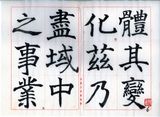 體其變
化茲乃
盡域中
之事業